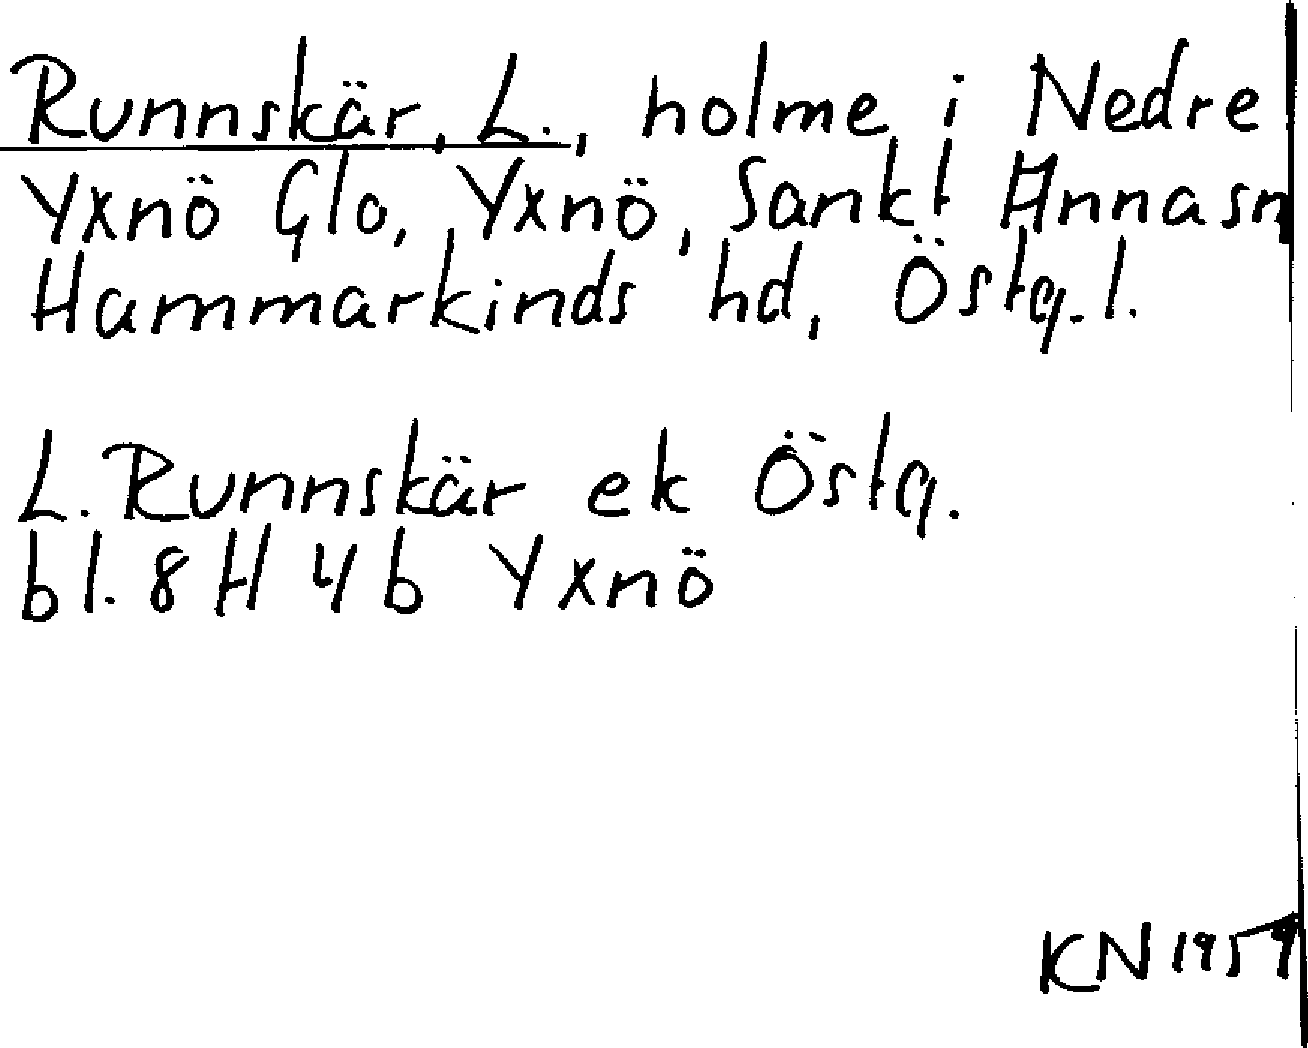 Runnskär, L., holme i Nedre
Yxnö Glo, Yxnö, Sankt Anna sn
Hammarkinds hd, Östg. l.
L. Runnskär ek Östg.
bl. 8 H 4 b Yxnö
KN 1959